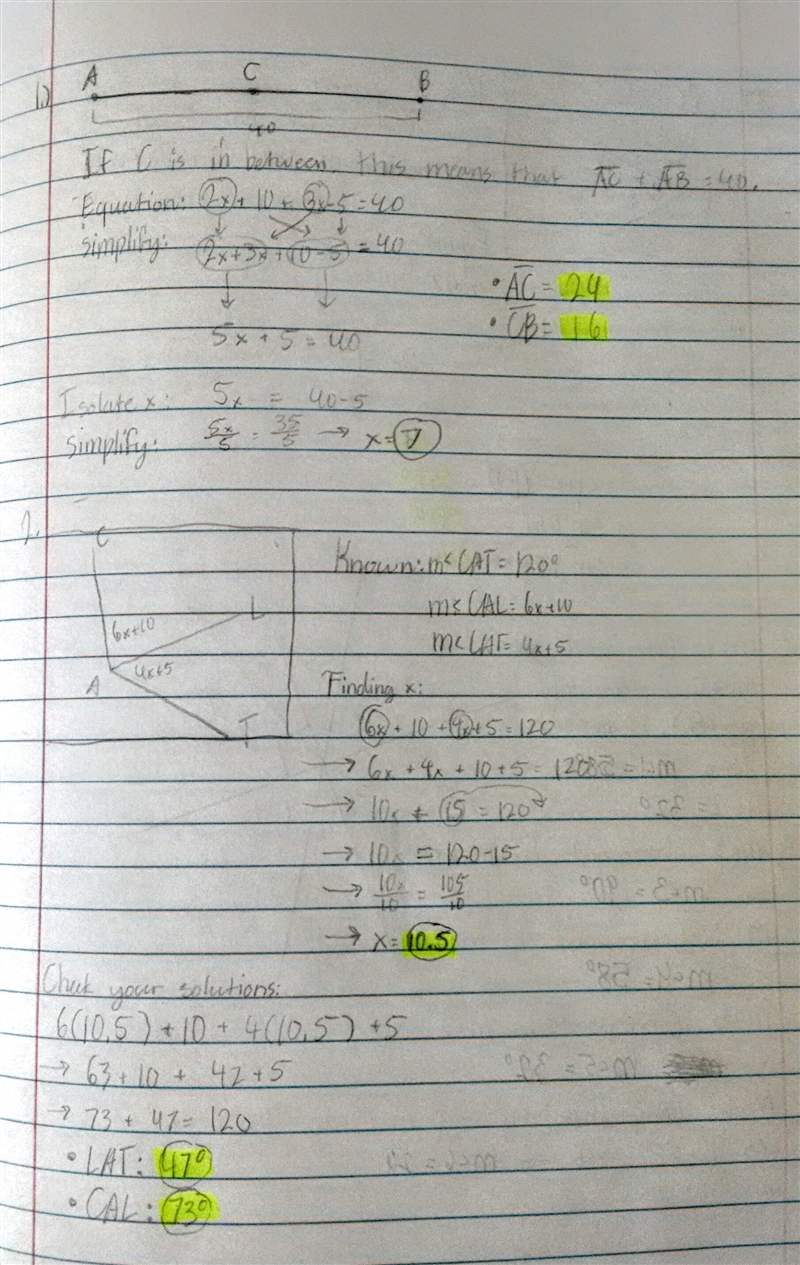 1.) A C B
40
If C is in between, this means that AC + AB = 40.
Equation: 2x + 10 + 3x - 5 = 40
simplify: 2x + 3x + 10 - 5 = 40
• AC = 24
5x + 5 = 40
• CB = 16
Isolate x: 5x = 40 - 5
simplify: 5x/5 = 35/5 → x = 7
2.
C
Known: m< CAT = 120°
6x+10 L
m< CAL = 6x+10
4x+5
m< LAT = 4x+5
A
Finding x:
T
6x + 10 + 4x + 5 = 120
→ 6x + 4x + 10 + 5 = 120
→ 10x + 15 = 120
→ 10x = 120 - 15
→ 10x/10 = 105/10
→ x = 10.5
Chek your solutions:
6(10.5) + 10 + 4(10.5) + 5
→ 63 + 10 + 42 + 5
→ 73 + 47 = 120
• LAT: 47°
• CAL: 73°